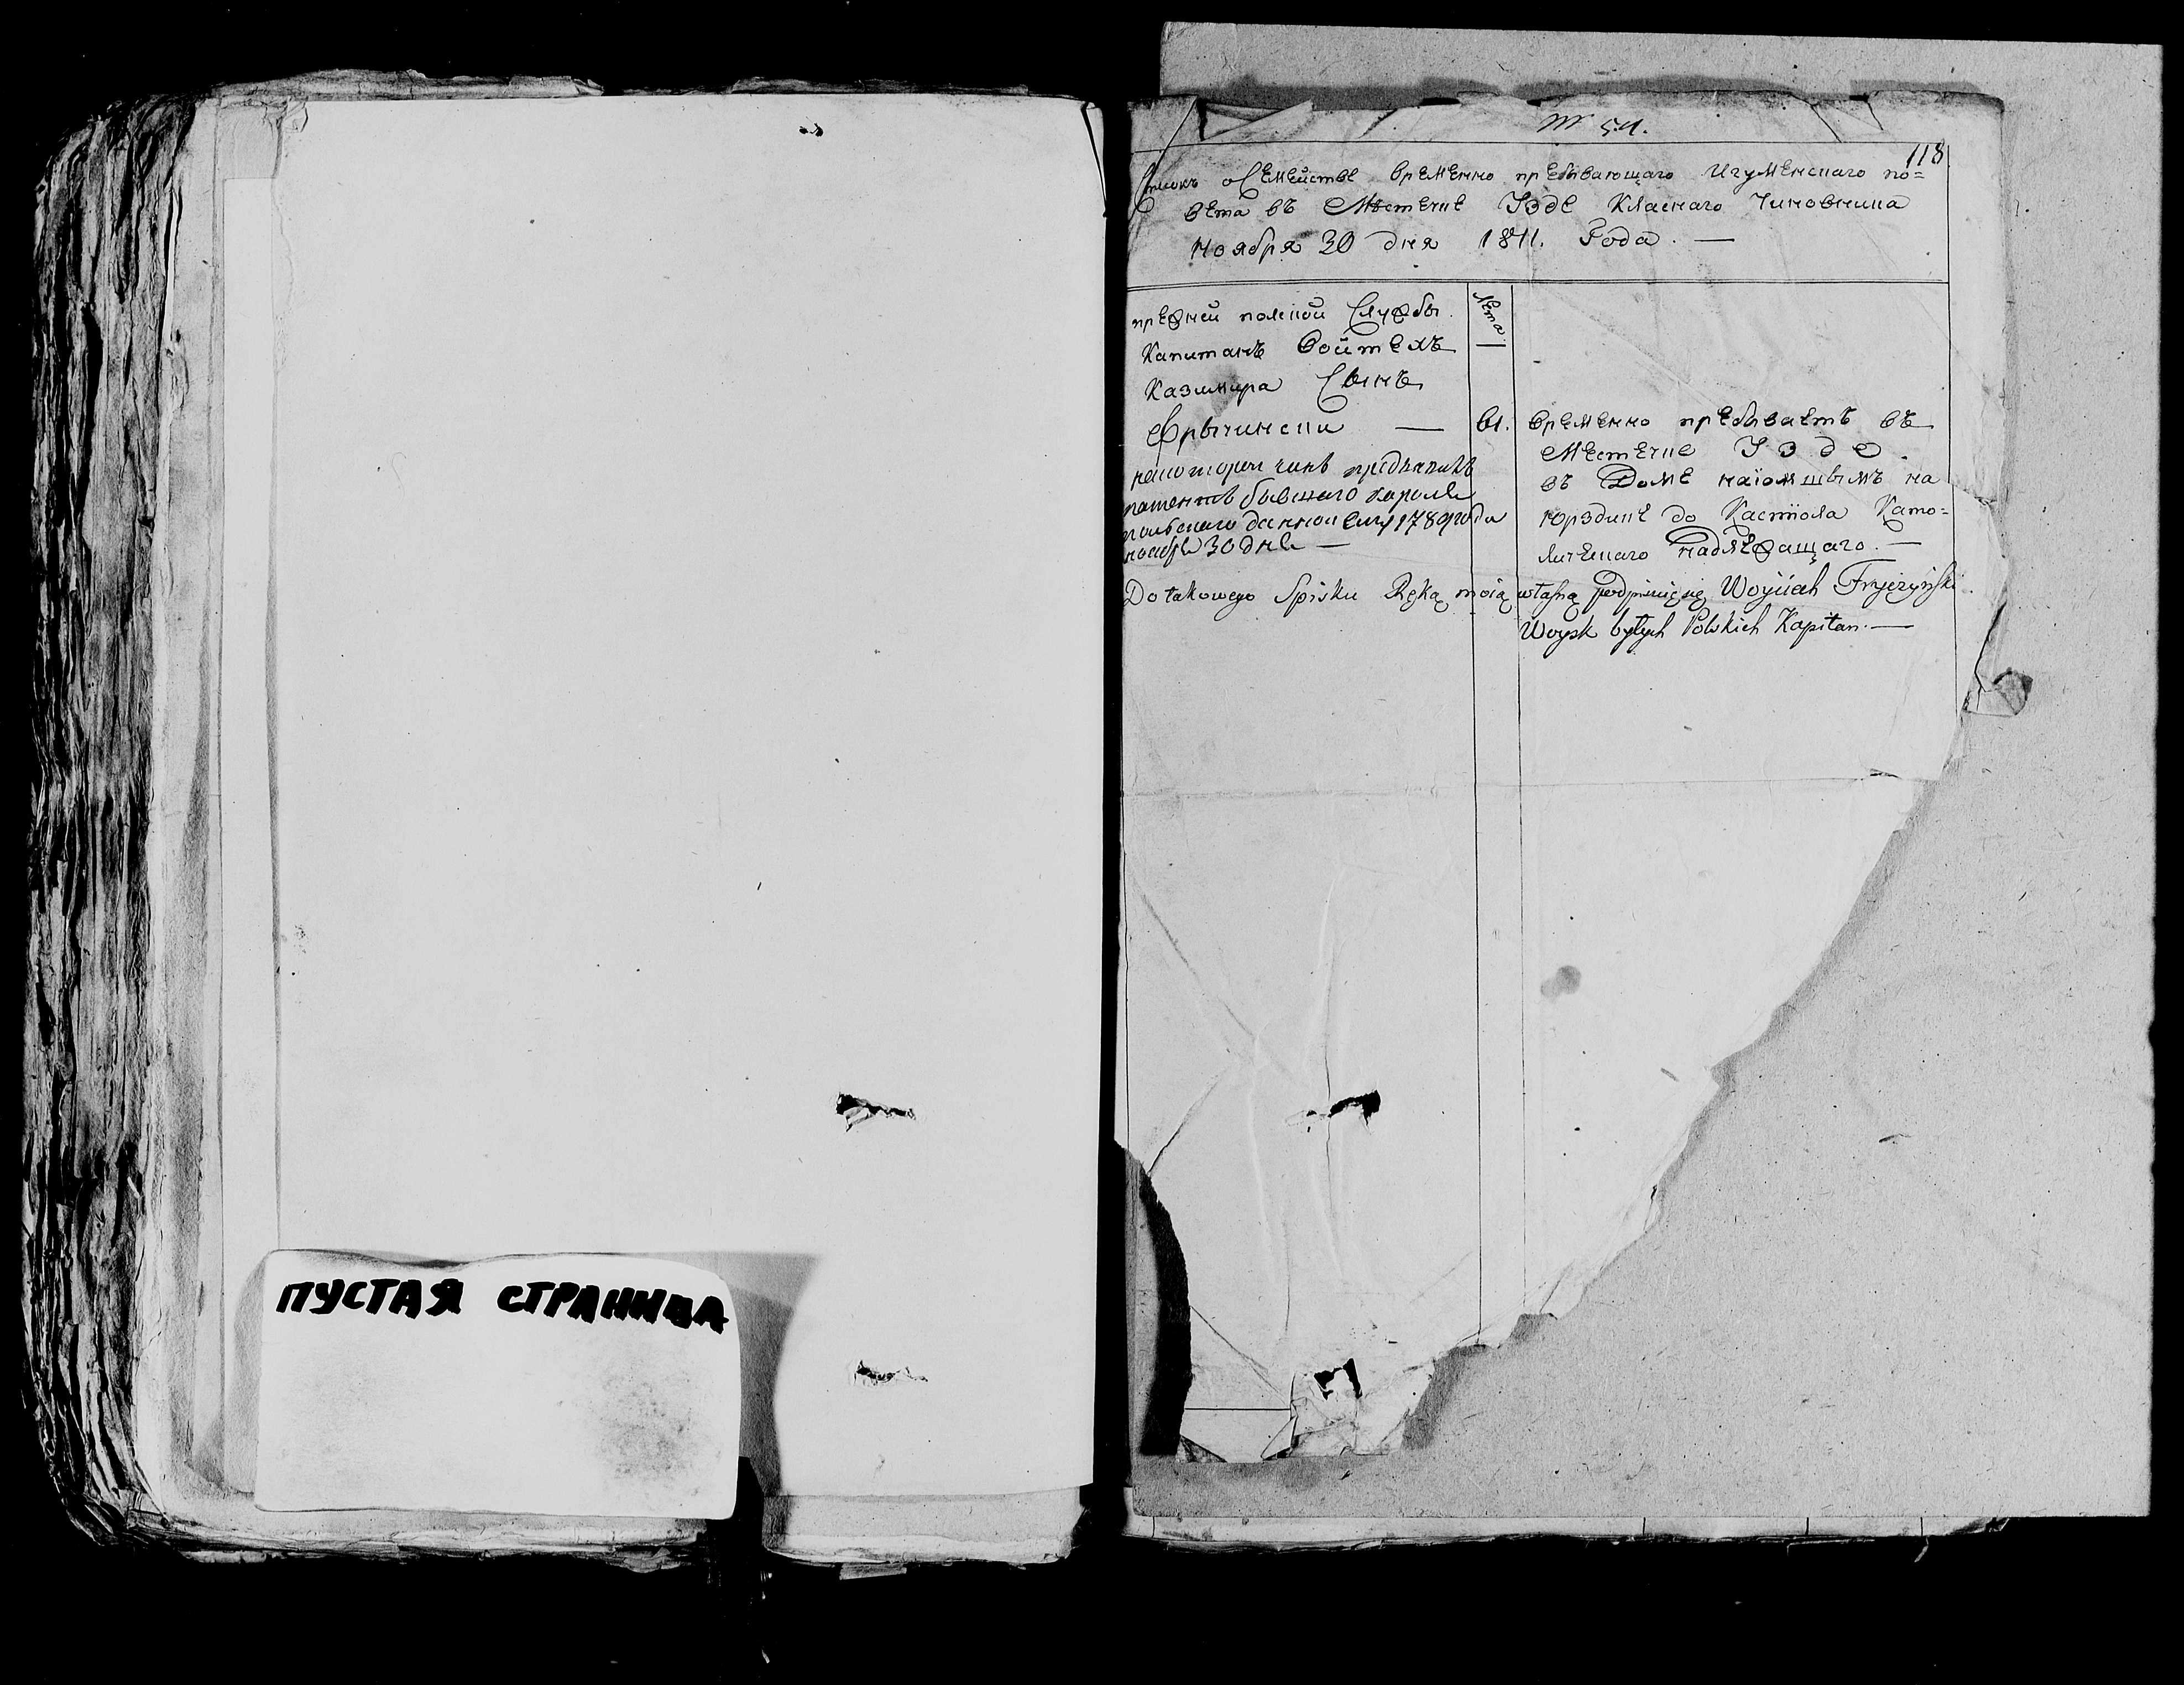 ПУСТАЯ СТРАНИЦА
№ 54.
118
Списокъ о Семействе временно пребывающаго Игуменскаго по=
вета въ Местечке Узде Класнаго Чиновника
Ноября 30 дня 1811. Года. —
прежней полской Службы
Капитанъ Войтехъ
Казимира Сынъ
Фрычински — 61.
Лета
на которой чинъ предъявилъ
патентъ бывшаго короля
польскаго данной ему 1789 года
ноября 30 дня —
временно пребываетъ въ
Местечке Узде.
въ Доме наіомшымъ на
юрздике до Кастіола Като=
лическаго надлежащаго. —
Do takowego Spisku Ręką moią własną podpisuię się Woyciech Fryczyński
Woysk byłych Polskich Kapitan. —